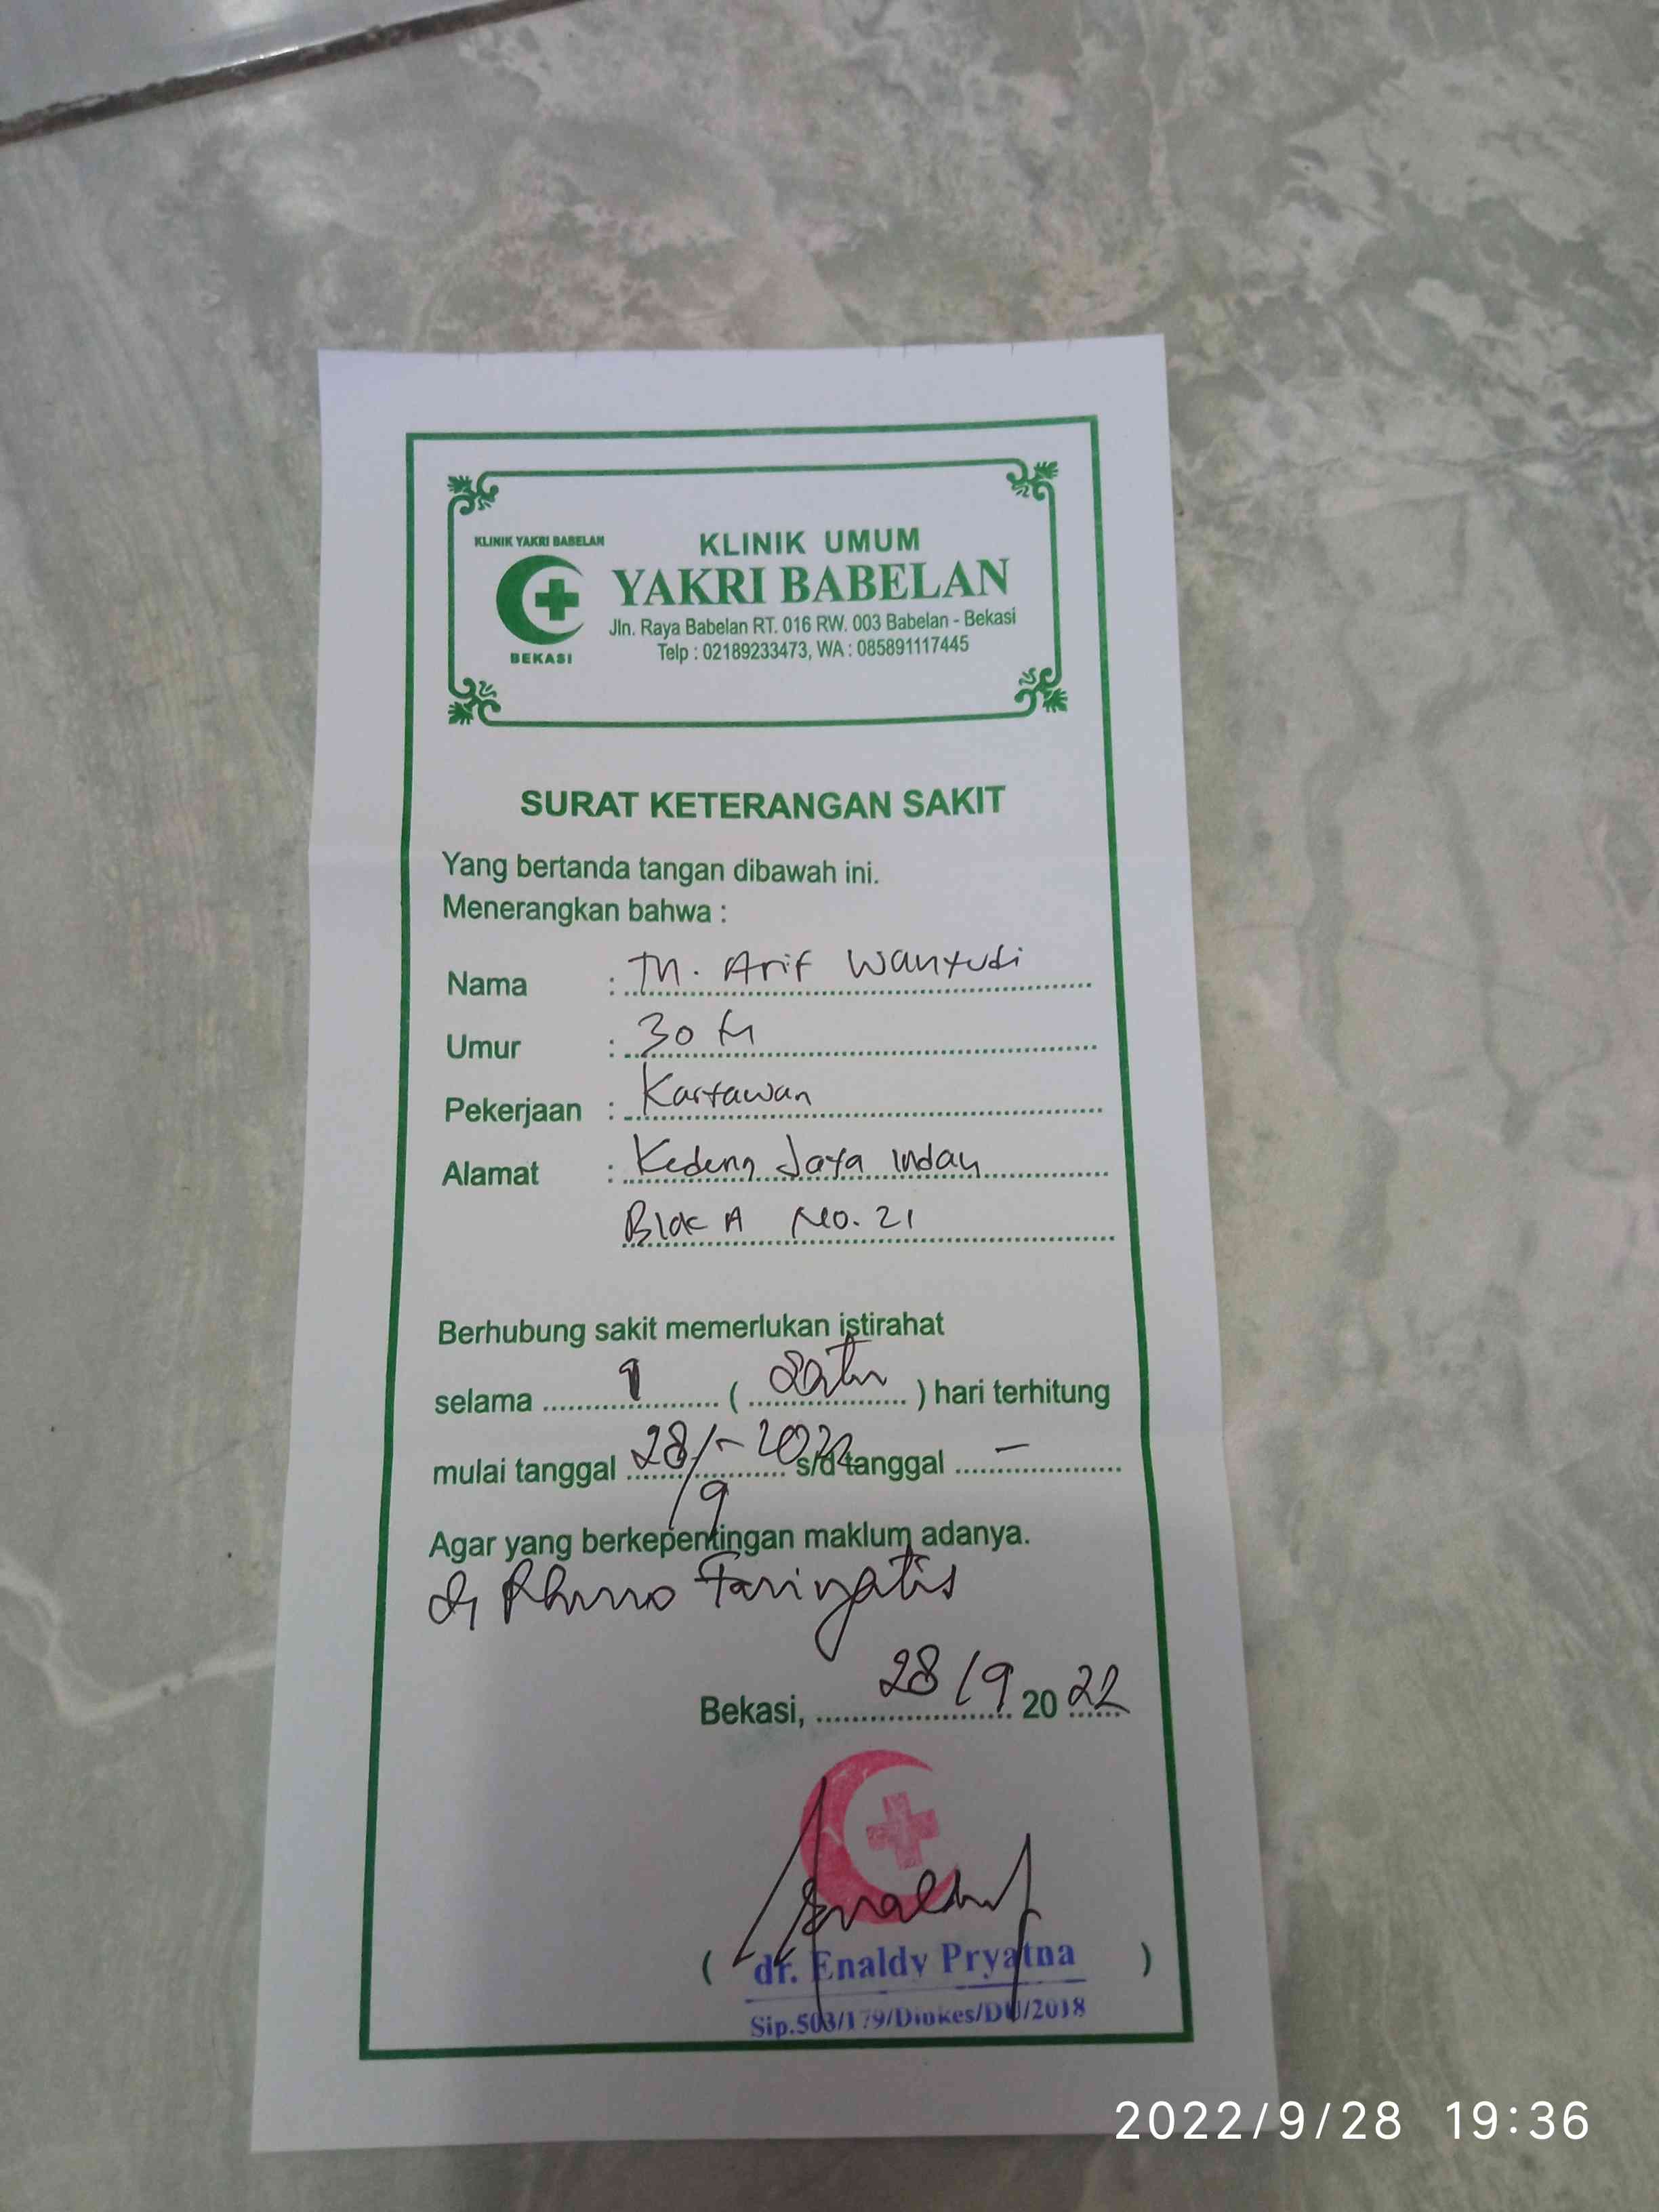 KLINIK YAKRI BABELAN
BEKASI
KLINIK UMUM
YAKRI BABELAN
Jln. Raya Babelan RT. 016 RW. 003 Babelan - Bekasi
Telp : 02189233473, WA : 085891117445
SURAT KETERANGAN SAKIT
Yang bertanda tangan dibawah ini.
Menerangkan bahwa :
Nama : Tn. Arif Wahyudi
Umur : 30 th
Pekerjaan : Karyawan
Alamat : Kedeng Jaya Indah
Blok A No. 21
Berhubung sakit memerlukan istirahat
selama 1 ( Satu ) hari terhitung
mulai tanggal 28/9 - 2022 s/d tanggal -
Agar yang berkepentingan maklum adanya.
Bekasi, 28/9 2022
( dr. Enaldy Pryatna )
Sip.503/179/Dinkes/DU/2018
2022/9/28 19:36